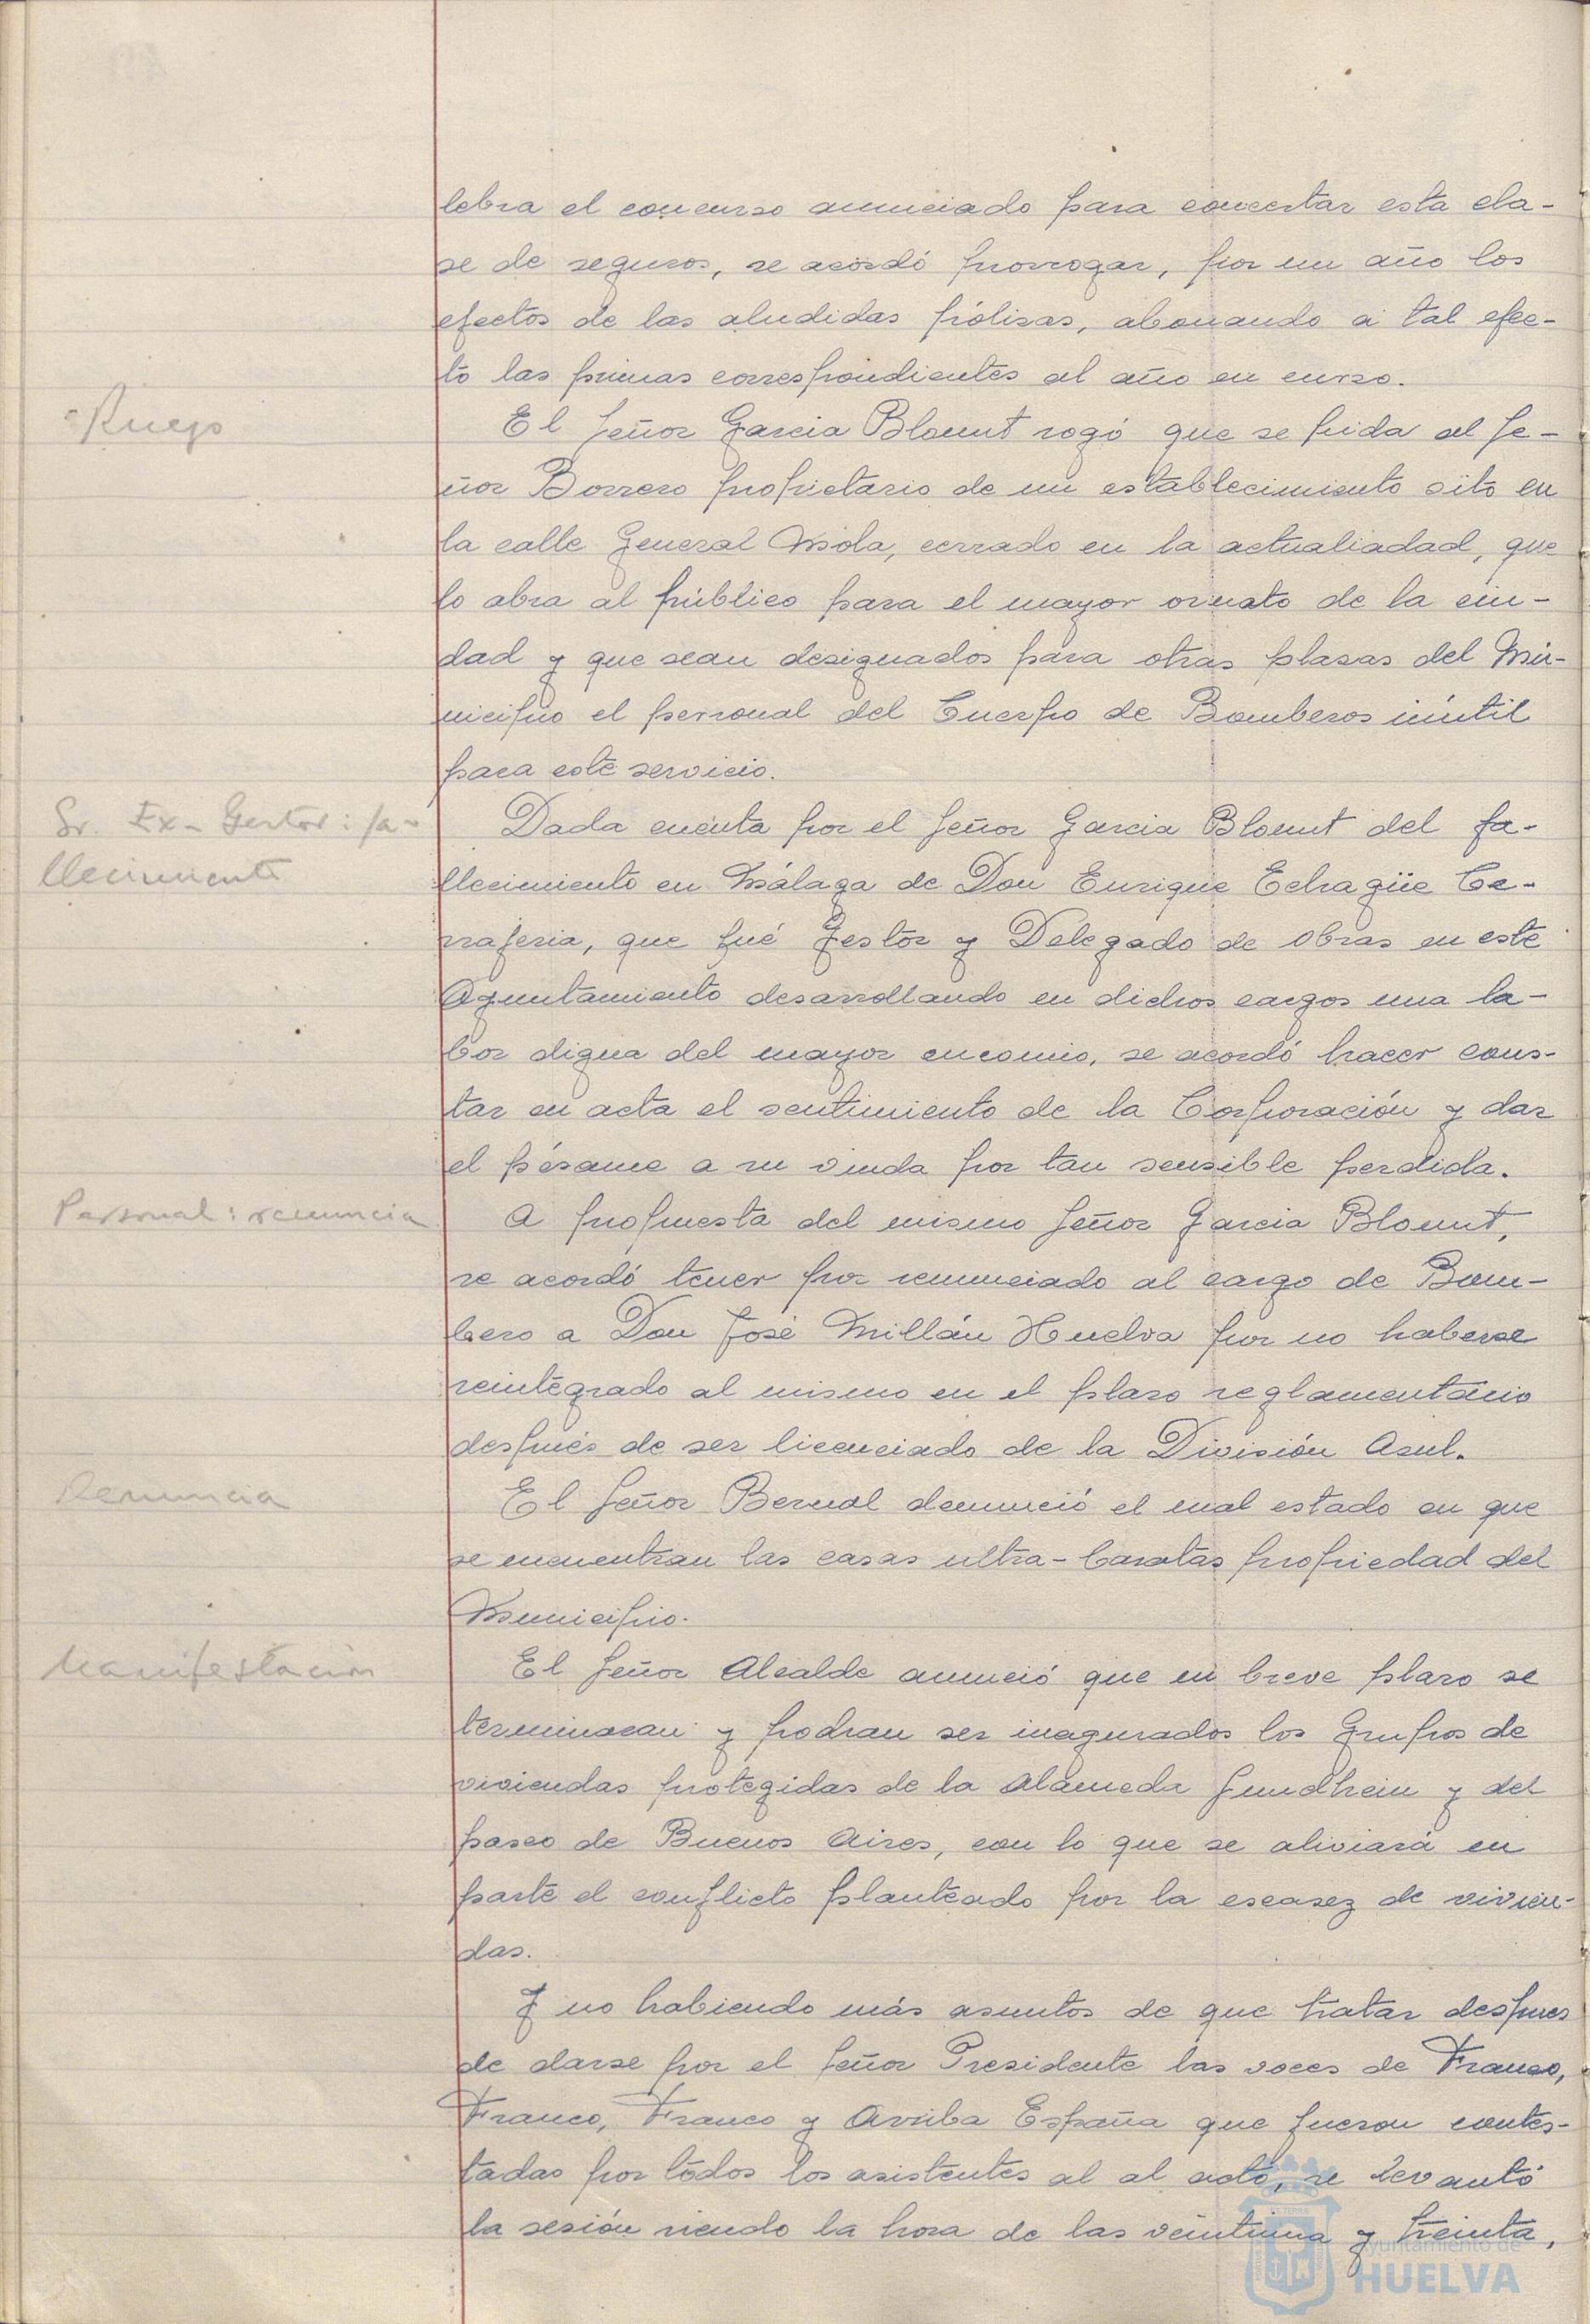 lebra el concurso anunciado para concertar esta cla-
se de seguros, se acordó prorrogar, por un año los
efectos de las aludidas pólizas, abonando a tal efec-
to las primas correspondientes al año en curso.
Ruego
El Señor Garcia Blount rogó que se pida al Se-
ñor Borrero propietario de un establecimiento sito en
la calle General Mola, cerrado en la actualiadad, que
lo abra al público para el mayor ornato de la ciu-
dad y que sean designados para otras plazas del Mu-
nicipio el personal del Cuerpo de Bomberos inútil
para este servicio.
Sr. Ex-Gestor: fa-
llecimiento
Dada cuenta por el Señor Garcia Blount del fa-
llecimiento en Málaga de Don Enrique Echagüe Ca-
rraferia, que fué Gestor y Delegado de obras en este
Ayuntamiento desarrollando en dichos cargos una la-
bor digna del mayor encomio, se acordó hacer cons-
tar en acta el sentimiento de la Corporación y dar
el pésame a su viuda por tan sensible perdida.
Personal: renuncia
A propuesta del mismo Señor Garcia Blount,
se acordó tener por renunciado al cargo de Bom-
bero a Don José Millán Huelva por no haberse
reintegrado al mismo en el plazo reglamentario
después de ser licenciado de la División Azul.
Denuncia
El Señor Bernal denunció el mal estado en que
se encuentran las casas ultra-baratas propiedad del
Municipio.
Manifestación
El Señor Alcalde anunció que en breve plazo se
terminaran y podran ser inagurados los Grupos de
viviendas protegidas de la Alameda Sundhein y del
paseo de Buenos Aires, con lo que se aliviará en
parte el conflicto planteado por la escasez de vivien-
das.
Y no habiendo más asuntos de que tratar despues
de darse por el Señor Presidente las voces de Franco,
Franco, Franco y Arriba España que fueron contes-
tadas por todos los asistentes al al acto, se levantó
la sesión siendo la hora de las veintiuna y treinta,
Ayuntamiento de
HUELVA